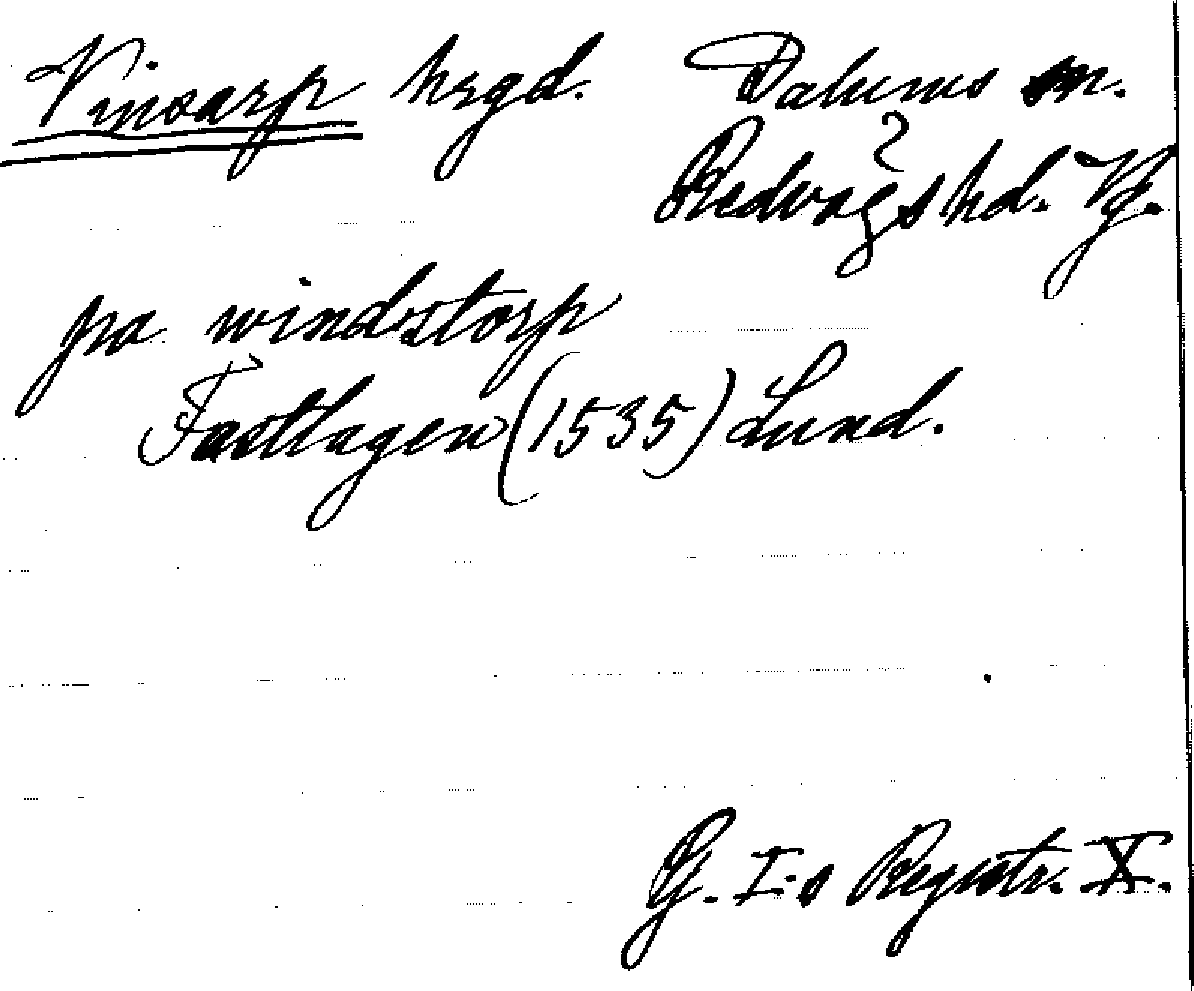 Vinsarp hrgd. Dalums sn.
Redvägs hd. Vg.
pa windstorp
Fastlagen (1535) Lund.
G. I:s Registr. X.